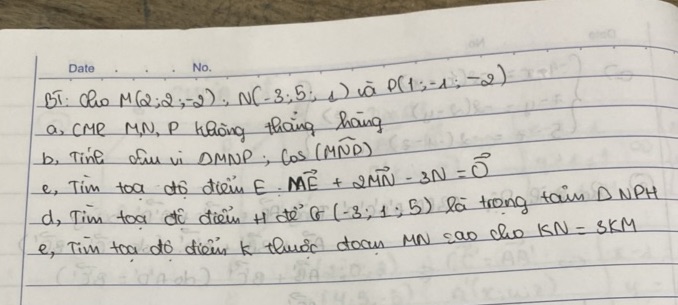 Date . . . . No.
BT: Cho M(2;2;-2), N(-3;5;1) và P(1;-1;-2)
a, CMR MN, P không thẳng hàng
b, Tính chu vi ΔMNP; Cos(MNP)
c, Tìm toạ độ điểm E. ME + 2MN - 3N = O
d, Tìm toạ độ điểm H để G(-3;1;5) là trọng tâm Δ NPH
e, Tìm toạ độ điểm K thuộc đoạn MN sao cho KN = 3KM